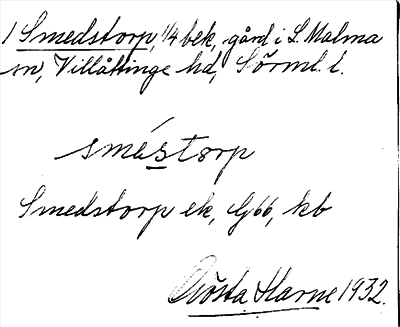 1 Smedstorp, 1/4 bek, gård i L. Malma
sn, Villåttinge hd, Sörml. l.
smés̲tørp
Smedstorp ek, G66, kb
Gösta Harne 1932.